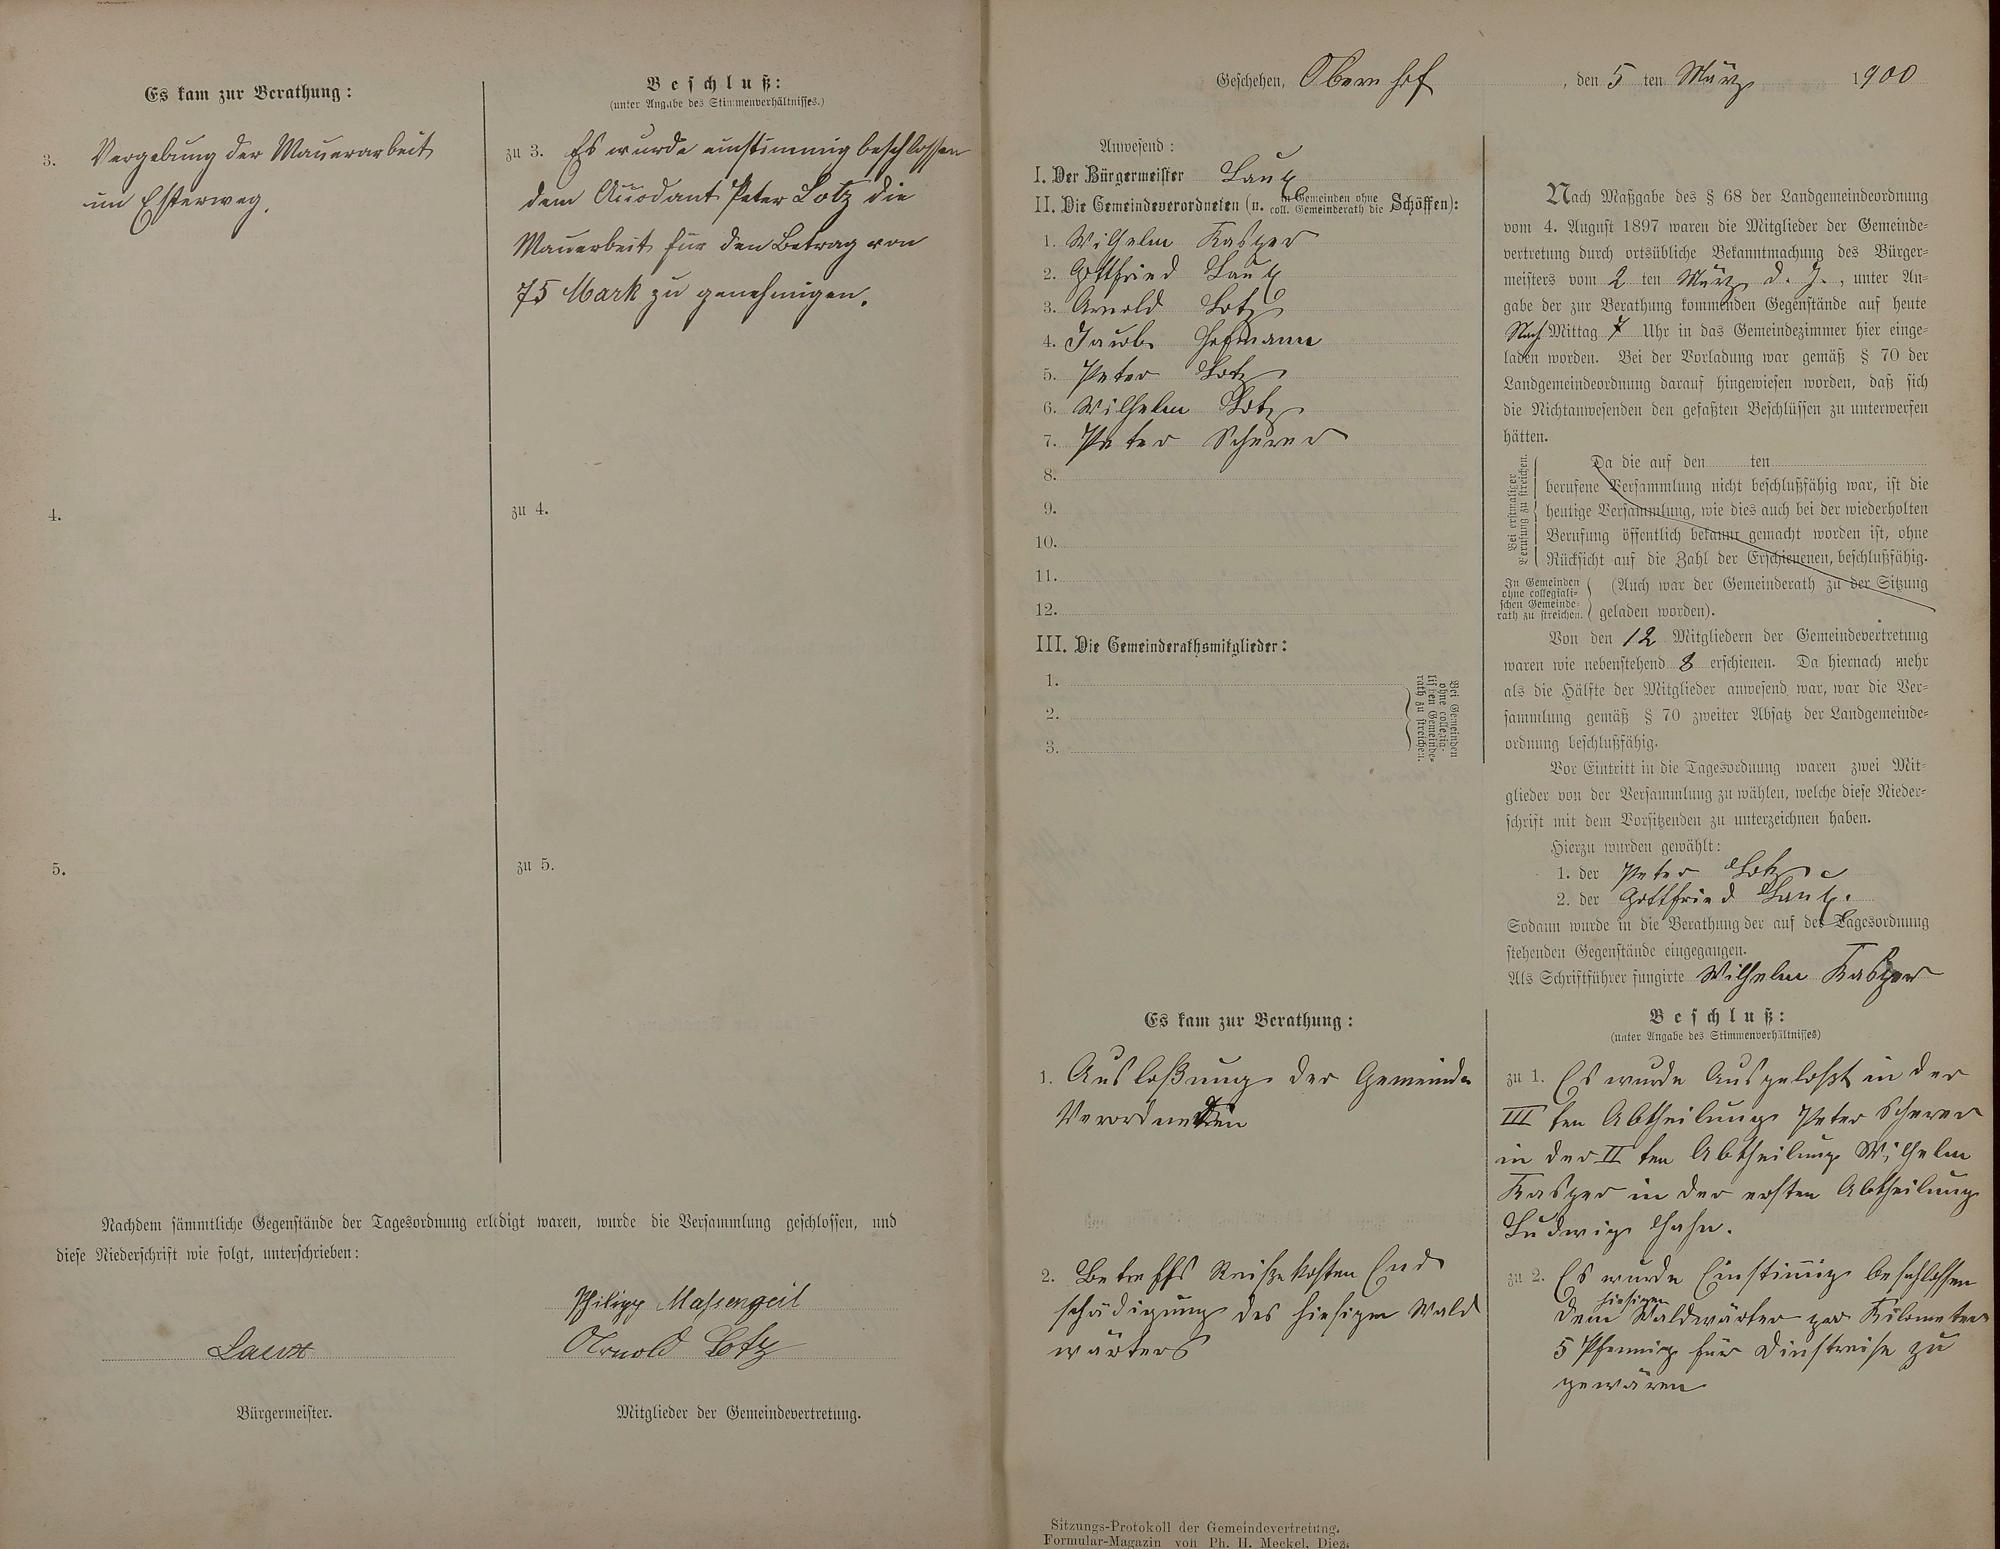 Es kam zur Berathung:
3. Vergebung der Mauerarbeit
im Esterweg.
4.
5.
Beschluß:
(unter Angabe des Stimmenverhältnisses.)
zu 3. Es wurde einstimmig beschlossen
dem Peter Lotz die
Mauerbeit für den Betrag von
75 Mark zu genehmigen.
zu 4.
zu 5.
Nachdem sämmtliche Gegenstände der Tagesordnung erledigt waren, wurde die Versammlung geschlossen, und
diese Niederschrift wie folgt, unterschrieben:
Philipp Massengeil
Laux
Arnold Lotz
Bürgermeister.
Mitglieder der Gemeindevertretung.
Geschehen, Obernhof, den 5 ten März 1900
Anwesend:
I. Der Bürgermeister Laux
II. Die Gemeindeverordneten (u. in Gemeinden ohne coll. Gemeinderath die Schöffen):
1. Wilhelm Kasper
2. Gottfried Laux
3. Arnold Lotz
4. Jacob Hofmann
5. Peter Lotz
6. Wilhelm Lotz
7. Peter Scherer
8.
9.
10.
11.
12.
III. Die Gemeinderathsmitglieder:
1.
2.
3.
Bei Gemeinden
ohne collegia-
lischen Gemeinde-
rath zu streichen.
Nach Maßgabe des § 68 der Landgemeindeordnung
vom 4. August 1897 waren die Mitglieder der Gemeinde-
vertretung durch ortsübliche Bekanntmachung des Bürger-
meisters vom 2 ten März d. J., unter An-
gabe der zur Berathung kommenden Gegenstände auf heute
Nach Mittag 7 Uhr in das Gemeindezimmer hier einge-
laden worden. Bei der Vorladung war gemäß § 70 der
Landgemeindeordnung darauf hingewiesen worden, daß sich
die Nichtanwesenden den gefaßten Beschlüssen zu unterwerfen
hätten.
Bei erstmaliger
Berufung zu streichen.
Da die auf den ten
berufene Versammlung nicht beschlußfähig war, ist die
heutige Versammlung, wie dies auch bei der wiederholten
Berufung öffentlich bekannt gemacht worden ist, ohne
Rücksicht auf die Zahl der Erschienenen, beschlußfähig.
In Gemeinden
ohne collegiali-
schen Gemeinde-
rath zu streichen.
(Auch war der Gemeinderath zu der Sitzung
geladen worden).
Von den 12 Mitgliedern der Gemeindevertretung
waren wie nebenstehend 8 erschienen. Da hiernach mehr
als die Hälfte der Mitglieder anwesend war, war die Ver-
sammlung gemäß § 70 zweiter Absatz der Landgemeinde-
ordnung beschlußfähig.
Vor Eintritt in die Tagesordnung waren zwei Mit-
glieder von der Versammlung zu wählen, welche diese Nieder-
schrift mit dem Vorsitzenden zu unterzeichnen haben.
Hierzu wurden gewählt:
1. der Peter Lotz
2. der Gottfried Laux.
Sodann wurde in die Berathung der auf der Tagesordnung
stehenden Gegenstände eingegangen.
Als Schriftführer fungirte Wilhelm Kasper
Es kam zur Berathung:
1. Ausloßung der Gemeinde
Verordneten
2. Betreffs Reisekosten End
schädigung des hiesigen Wald
wärters
Beschluß:
(unter Angabe des Stimmenverhältnisses)
zu 1. Es wurde Ausgeloßt in der
III ten Abtheilung Peter Scherer
in der II ten Abtheilung Wilhelm
Kasper in der ersten Abtheilung
Ludwig Hahn.
zu 2. Es wurde Einstimig beschlossen
dem hiesigen Waldwärter per Kilometer
5 Pfennig für Dinstreise zu
gewären
Sitzungs-Protokoll der Gemeindevertretung.
Formular-Magazin von Ph. H. Meckel, Diez.